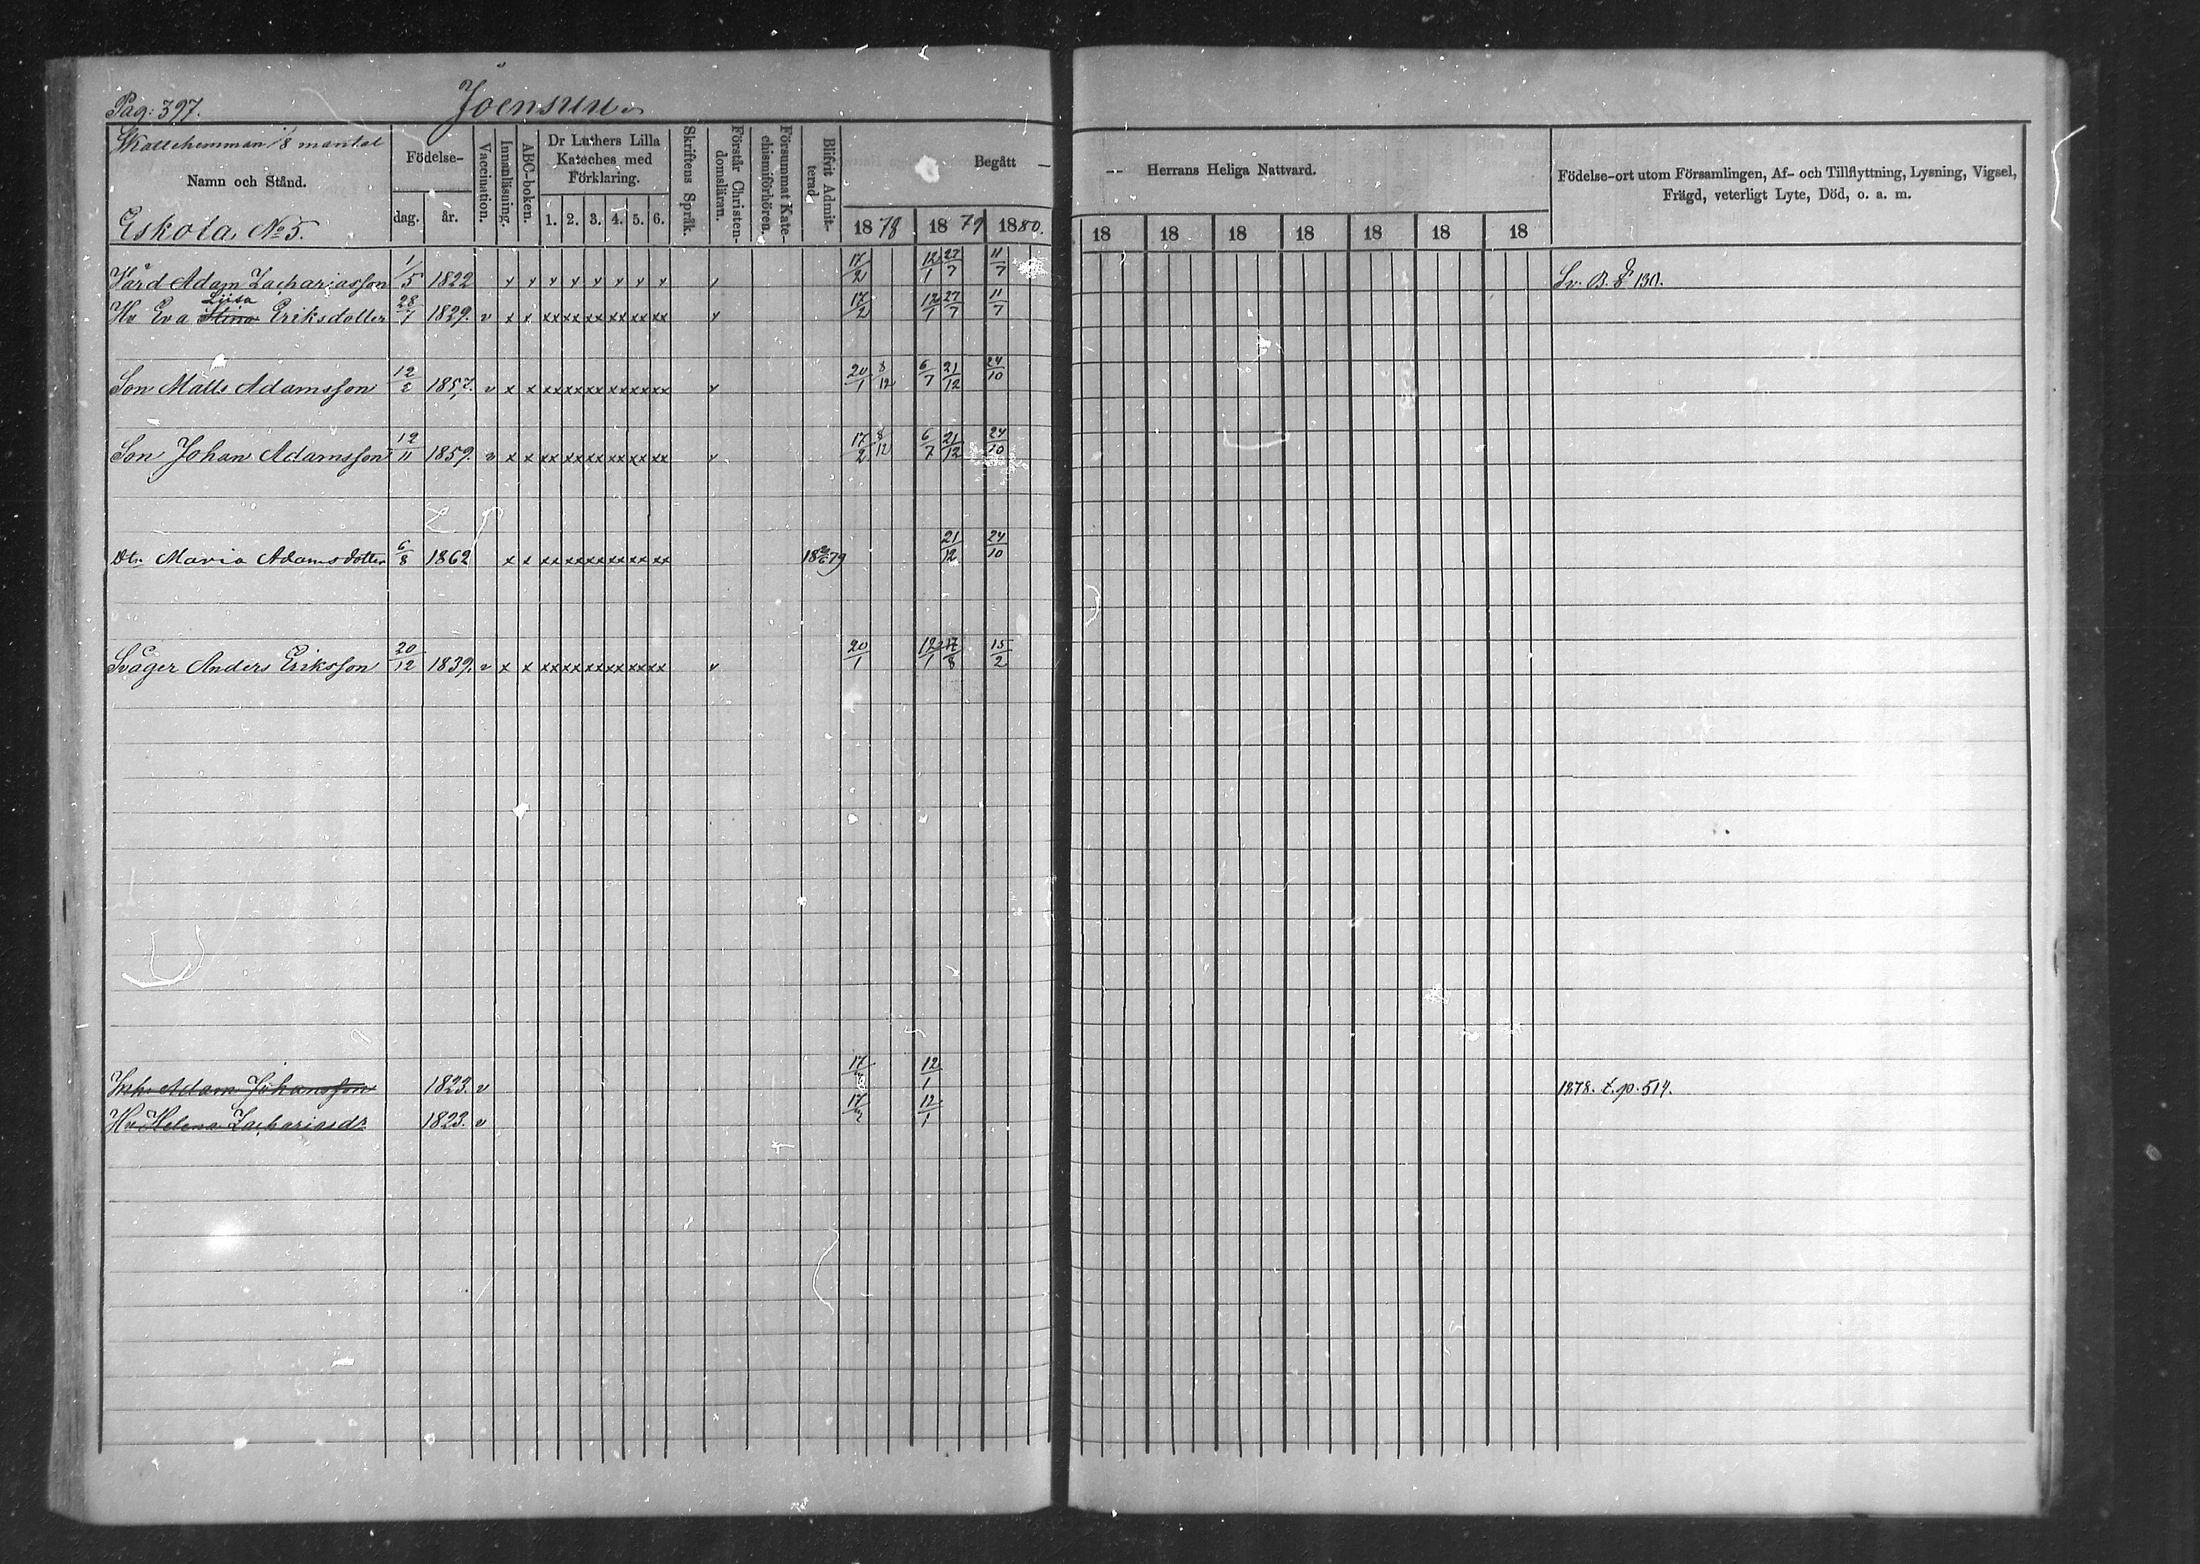 Pag: 397.
Joensuu
Skattehemman 1/8 mantal
Namn och Stånd.
Eskola No 5.
Födelse-
dag. år.
Vaccination.
Innanläsning.
ABC-boken.
Dr Luthers Lilla
Kateches med
Förklaring.
1. 2. 3. 4. 5. 6.
Skriftens Språk.
Förstår Christen-
domsläran.
Försummat Kate-
chismiförhören.
Blifvit Admit-
terad
Begått —
1878 1879 1880.
-- Herrans Heliga Nattvard.
18 18 18 18 18 18 18
Födelse-ort utom Församlingen, Af- och Tillflyttning, Lysning, Vigsel,
Frägd, veterligt Lyte, Död, o. a. m.
Vård Adam Zachariasson 1/5 1822 v v v v v v v v v 17/2 12/1 27/7 11/7
Liisa
Hu Eva Stina Eriksdotter 28/1 1829. v x x xx xx xx xx xx xx v 17/2 12/1 27/7 11/7
Son Matts Adamsson 12/2 1857. v x x xx xx xx xx xx xx v 20/1 8/12 6/7 21/12 24/10
Son Johan Adamsson 12/11 1859. v x x xx xx xx xx xx xx v 17/2 8/12 6/7 21/12 24/10
Dtr Maria Adamsdotter 6/8 1862 x x xx xx xx xx xx xx 1879 21/12 24/10
Svåger Anders Eriksson 20/12 1839. v x x xx xx xx xx xx xx v 20/1 12/1 17/8 15/2
Inh. Adam Johansson 1823. v 17/2 12/1 1878. t. p. 517.
Hu Helena Zachariasdr 1823. v 17/2 12/1